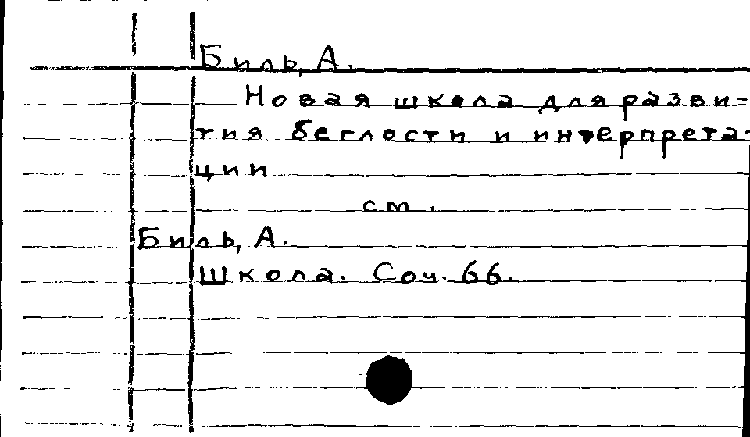 Биль, А.
Новая школа для разви-
тия беглости и интерпрета-
ции
см.
Биль, А.
Школа. Соч. 66.